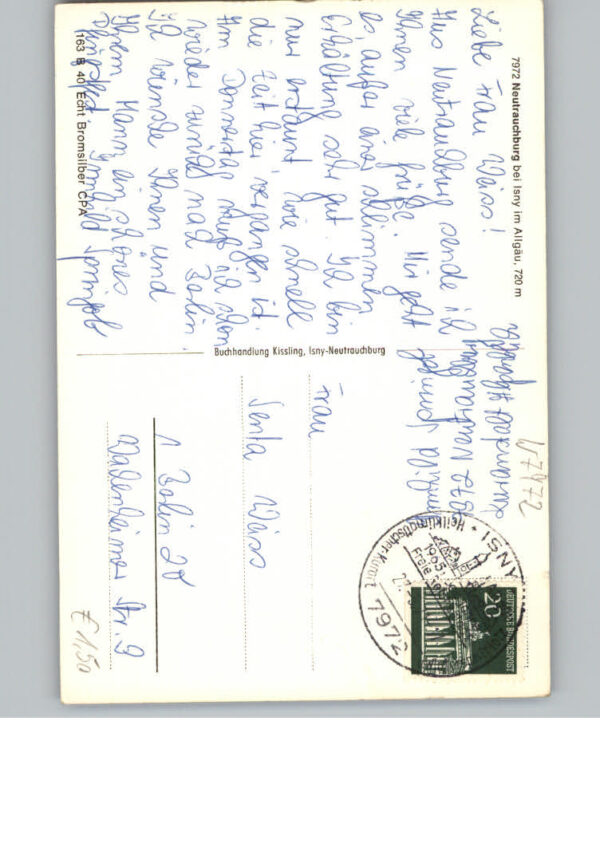 7972 Neutrauchburg bei Isny im Allgäu, 720 m
Liebe Frau Weiss!
Aus Neutrauchburg sende ich
Ihnen viele Grüße. Mir geht
es, außer einer schlimmen
Erkältung sehr gut. Ich bin
nur erstaunt wie schnell
die Zeit hier vergangen ist.
Am Donnerstag muß ich schon
wieder zurück nach Berlin.
Ich wünsche Ihnen und
Ihrem Mann ein schönes
163 B 40 Echt Bromsilber CPA
Buchhandlung Kissling, Isny-Neutrauchburg
7972 Neutrauchburg
W7972
Frau
Senta Weiss
1 Berlin 20
Wadenheimer Str. 9
€ 1,50
ISNY
Heilklimatischer Kurort
1965
7972
20
DEUTSCHE BUNDESPOST